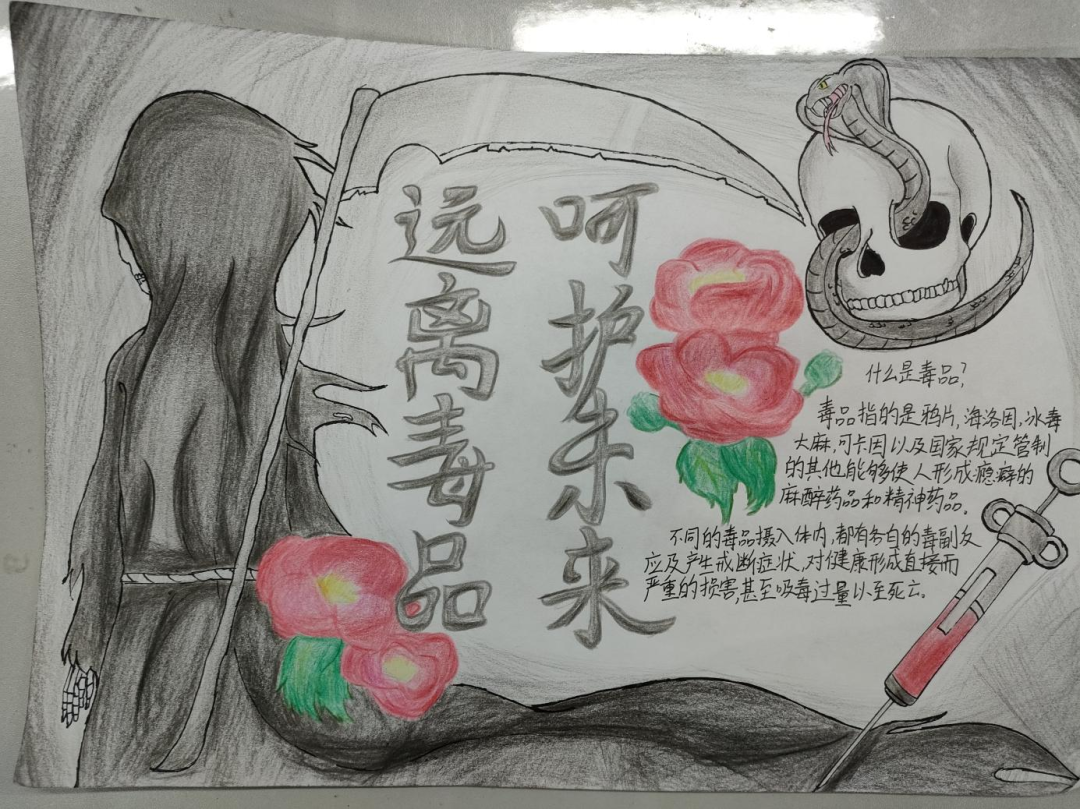 远离毒品
呵护未来
什么是毒品?
毒品指的是鸦片,海洛因,冰毒
大麻,可卡因以及国家规定管制
的其他能够使人形成瘾癖的
麻醉药品和精神药品。
不同的毒品摄入体内,都有各自的毒副反
应及产生戒断症状,对健康形成直接而
严重的损害,甚至吸毒过量以至死亡。